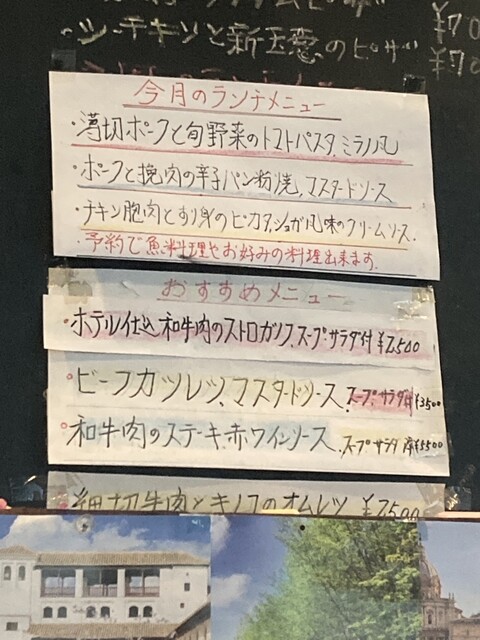 ・ツーテキソと新玉葱のピザ ¥70
今月のランチメニュー
・薄切ポークと旬野菜のトマトパスタ、ミラノ風
・ポークと挽肉の辛子パン粉焼、マスタードソース
・チキン胸肉とすり身のピカタ、ショガ風味のクリームソース.
・予約で魚料理やお好みの料理出来ます.
おすすめメニュー
・ホテル仕込和牛肉のストロガノフ、スープサラダ付 ¥2500
・ビーフカツレツ、マスタードソース、スープ、サラダ付 ¥3500
・和牛肉のステーキ、赤ワインソース、スープサラダ付 ¥5500
・細切牛肉とキノコのオムレツ ¥2500